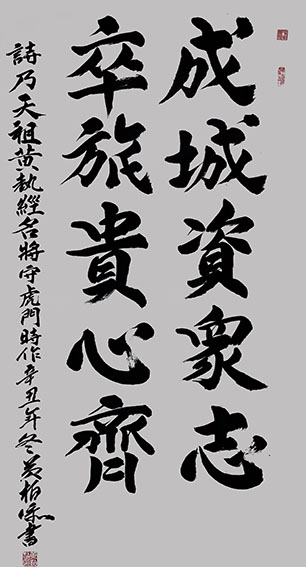 成城資眾志
卒旅貴心齊
詩乃天祖黃執經名將守虎門時作辛丑年冬黃柏添書